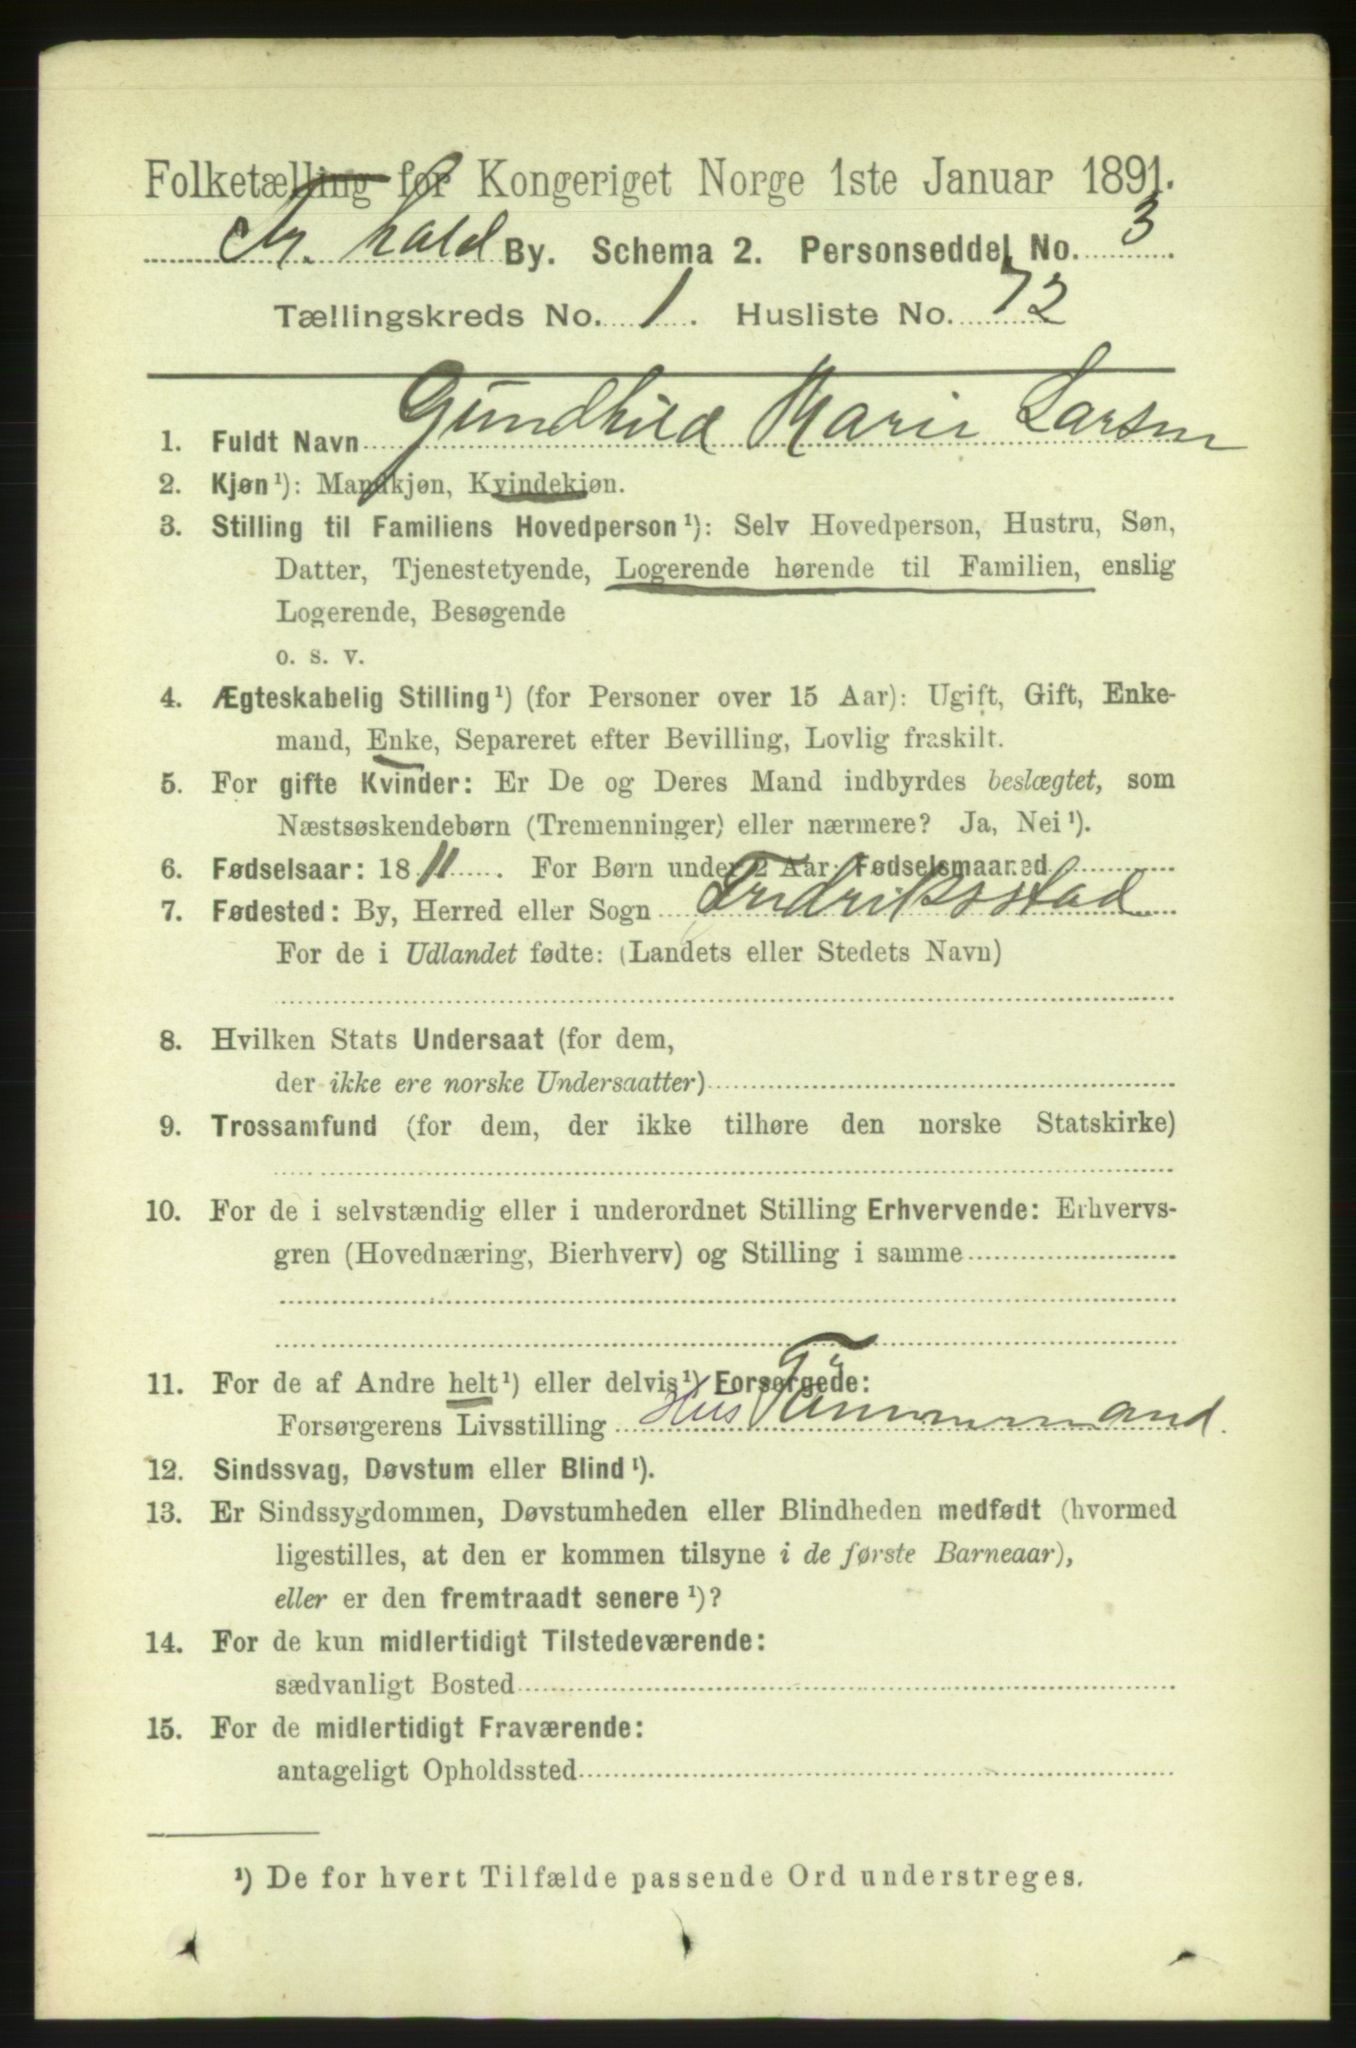 Folketælling for Kongeriget Norge 1ste Januar 1891.
Fr. hald By. Schema 2. Personseddel No. 3
Tællingskreds No. 1. Husliste No. 72
1. Fuldt Navn Gundhild Marie Larsen
2. Kjøn¹): Mandkjøn, Kvindekjøn.
3. Stilling til Familiens Hovedperson¹): Selv Hovedperson, Hustru, Søn,
Datter, Tjenestetyende, Logerende hørende til Familien, enslig
Logerende, Besøgende
o. s. v.
4. Ægteskabelig Stilling¹) (for Personer over 15 Aar): Ugift, Gift, Enke-
mand, Enke, Separeret efter Bevilling, Lovlig fraskilt.
5. For gifte Kvinder: Er De og Deres Mand indbyrdes beslægtet, som
Næstsøskendebørn (Tremenninger) eller nærmere? Ja, Nei¹).
6. Fødselsaar: 1811. For Børn under 2 Aar: Fødselsmaaned
7. Fødested: By, Herred eller Sogn Fredriksstad
For de i Udlandet fødte: (Landets eller Stedets Navn)
8. Hvilken Stats Undersaat (for dem,
der ikke ere norske Undersaatter)
9. Trossamfund (for dem, der ikke tilhøre den norske Statskirke)
10. For de i selvstændig eller i underordnet Stilling Erhvervende: Erhvervs-
gren (Hovednæring, Bierhverv) og Stilling i samme
11. For de af Andre helt¹) eller delvis¹) Forsørgede:
Forsørgerens Livsstilling Hus Tömmermand.
12. Sindssvag, Døvstum eller Blind¹).
13. Er Sindssygdommen, Døvstumheden eller Blindheden medfødt (hvormed
ligestilles, at den er kommen tilsyne i de første Barneaar),
eller er den fremtraadt senere¹)?
14. For de kun midlertidigt Tilstedeværende:
sædvanligt Bosted
15. For de midlertidigt Fraværende:
antageligt Opholdssted
¹) De for hvert Tilfælde passende Ord understreges.